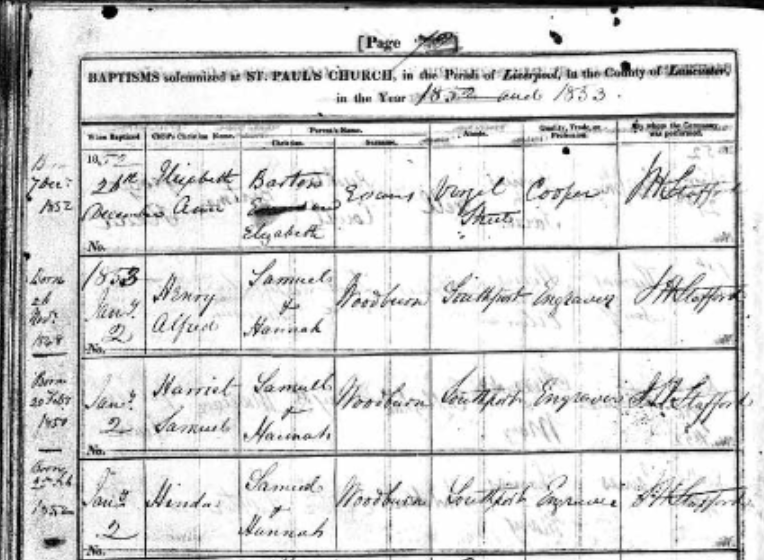 [Page
BAPTISMS solemnized at ST. PAUL'S CHURCH, in the Parish of Liverpool, in the County of Lancaster,
in the Year 1852 and 1853.
When Baptized. Child's Christian Name. Parent's Name. Abode. Quality, Trade, or Profession. By whom the Ceremony was performed.
Christian. Surname.
Born 7 Dec: 1852
1852
26th December Elizabeth Ann Barton Elizabeth Evans Virgil Street Cooper J H Stafford
No.
Born 26 Novr 1848
1853 Jany. 2 Henry Alfred Samuel & Hannah Woodburn Southport Engraver J H Stafford
No.
Born 20 Feby 1850
Jany. 2 Harriet Samuel Samuel & Hannah Woodburn Southport Engraver J H Stafford
No.
Born 25 Feb 1852
Jany. 2 Hinda Samuel & Hannah Woodburn Southport Engraver J H Stafford
No.